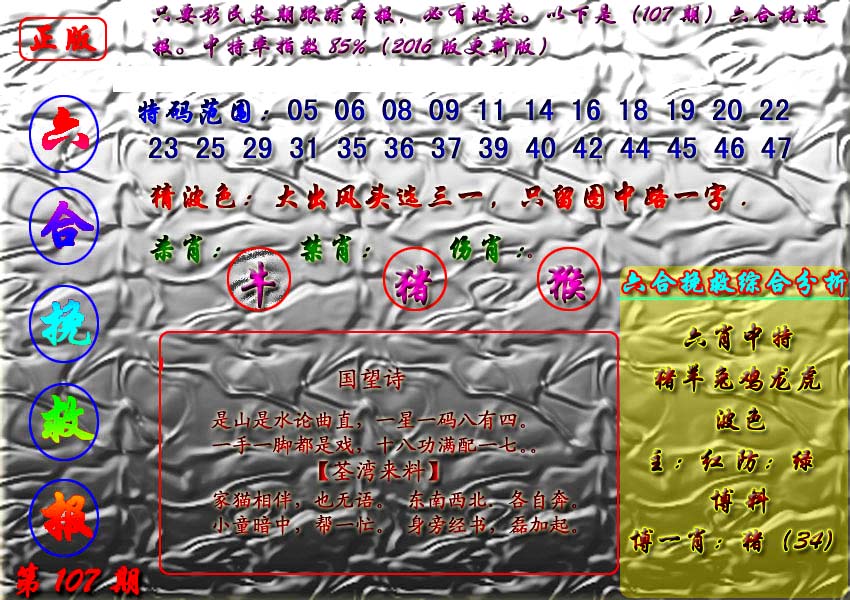 正版
只要彩民长期跟踪本报，必有收获。以下是（107期）六合挽救
报。中特率指数85%（2016版更新版）
六合挽救报
第107期
特码范围：05 06 08 09 11 14 16 18 19 20 22
23 25 29 31 35 36 37 39 40 42 44 45 46 47
猜波色：大出风头选三一，只留图中路一字．
杀肖：牛 禁肖：猪 伤肖：。猴
国望诗
是山是水论曲直，一星一码八有四。
一手一脚都是戏，十八功满配一七。。
【荃湾来料】
家猫相伴，也无语。 东南西北．各自奔。
小童暗中，帮一忙。 身旁经书，磊加起。
六合挽救综合分析
六肖中特
猪羊兔鸡龙虎
波色
主：红防：绿
博料
博一肖：猪（34）